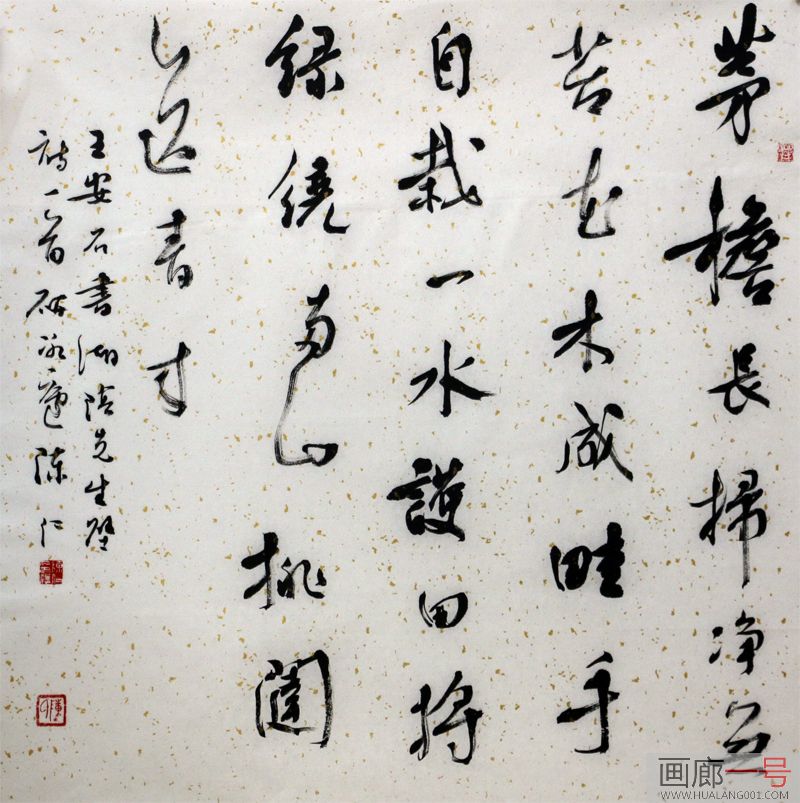 茅檐長掃净無
苔花木成畦手
自栽一水護田將
緑繞两山排闥
送青来
王安石書湖陰先生壁
詩一首 陳仁
画廊一号
WWW.HUALANG001.COM